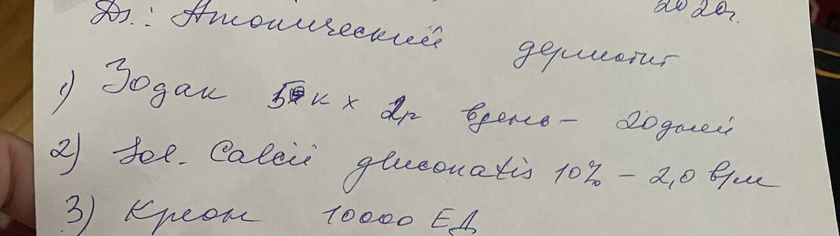 2020г.
Ds.: Атопический дерматит
1) Зодак 5 к x 2р вдень – 20 дней
2) Sol. Calcii gluconatis 10% – 2,0 в/м
3) Креон 10000 ЕД